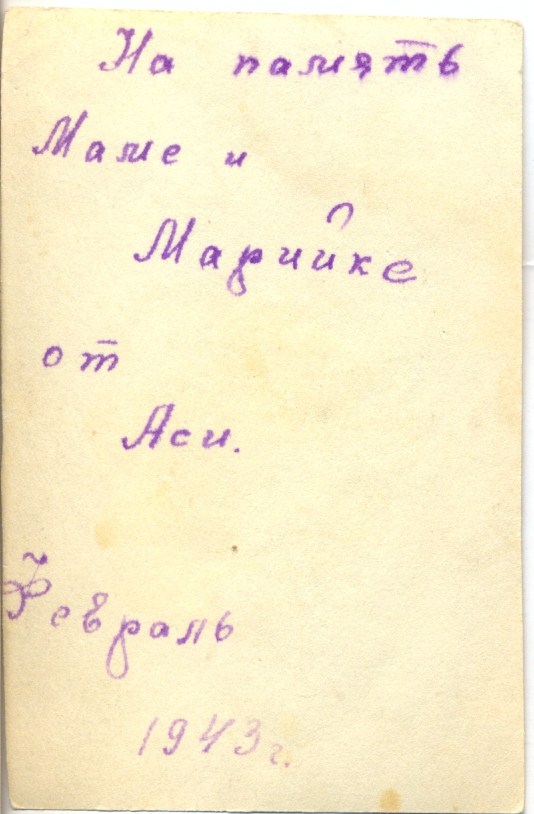 На память
Маме и
Марийке
от
Аси.
Февраль
1943 г.